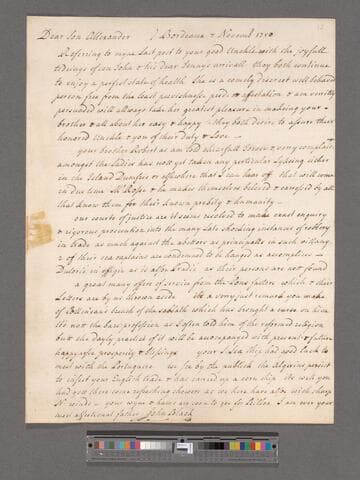 Dear Son Allexander } Bordeaux 7 Novemb 1750
Referring to myne Last post to your good Unckle with the joyfull
tideings of son John & his dear Jennys arrivall they both continue
to enjoy a perfect state of health She is a comely discreet well behaved
person free from the least peevishness, pride or affectation & am verrily
persuaded will allways take her greatest pleasure in making your
brother & all about her easy & happy they both desire to assure their
honored Unckle & you of their duty & Love
your brother Robert as am told chearfull brisk & very complaisant
amongst the Ladies has not yet taken any particular Lykeing either
in the Island Dumfres or elsewhere that I can hear off that will come
in due time Mr Pope & he makes themselves beloved & caressed by all
that know them for their known probity & humanity
our courts of justice are it seems resolved to make exact enquiry
& vigorous prosecution into the many Late shocking instances of robbery
in trade as much against the abettors as principalls in such villany
2 of their sea captains are condemned to be hanged as accomplices
in effigie as is also as their persons are not found
a great many offers of service from the Lyons factors which & their
Letters are by us thrown aside It's a very just remark you make
of breach of the sabbath which has brought a curse on him
it's not the bare profession as I often told him of the reformed religion
but the dayly practice of it will be accompanyed with present & future
happyness prosperity & blissings your I see they had good luck to
meet with the Portuguese we see by the publick the Algerins persist
to infest your English trade & has carried up a corn ship We wish you
had got there some refreshing showers as we here have also with sharp
N. winds I am ever your
most affectionat father John Black